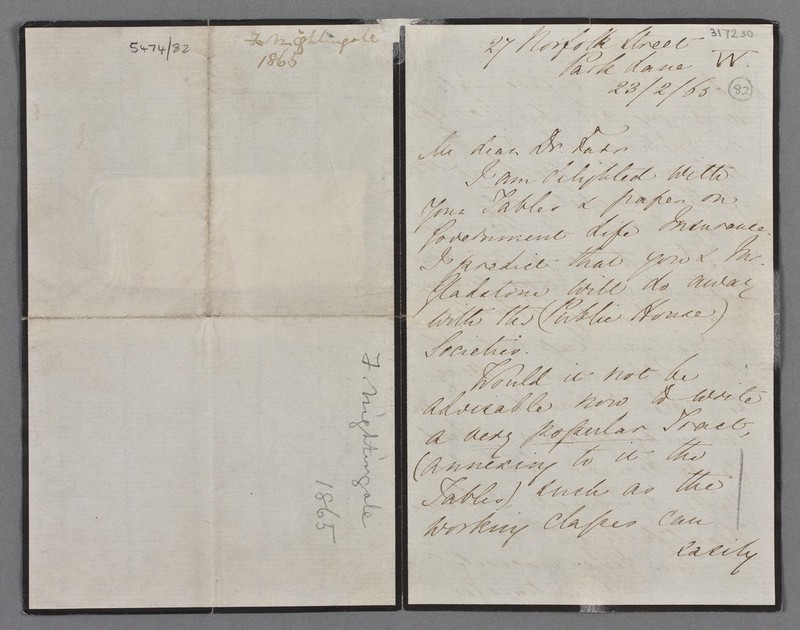 5474/82
F. Nightingale
1865
F. Nightingale
1865
317230
27 Norfolk Street
Park Lane W.
23/2/65
82
My dear Dr Farr
I am delighted with
your Tables & paper on
Government Life Insurance.
I predict that you & Mr.
Gladstone will do away
with the (Public House)
Societies.
Would it not be
advisable now to write
a very popular Tract,
(annexing to it the
Tables) such as the
working classes can
easily